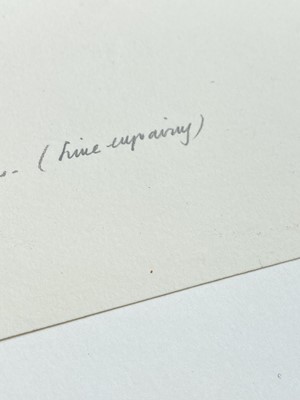 (line engraving)